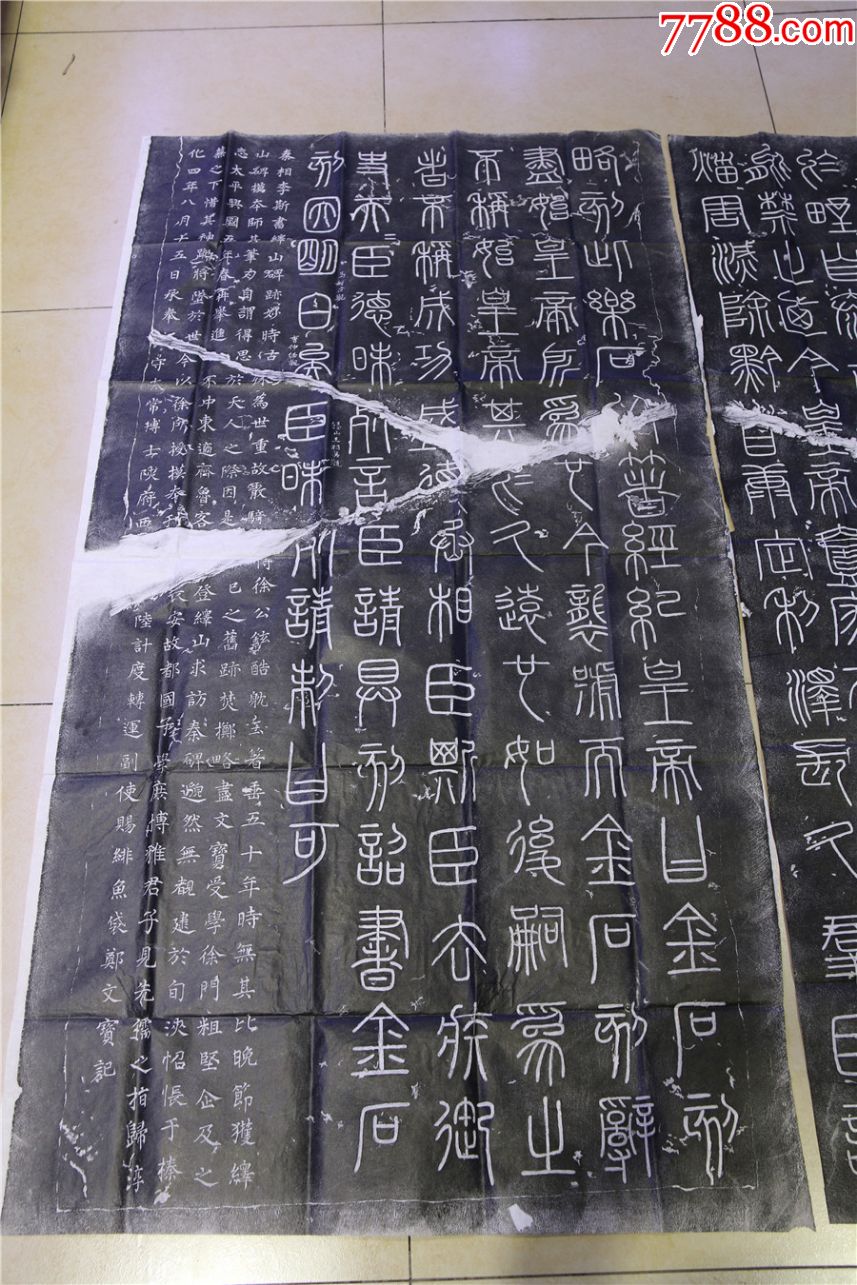 於野自泰
能禁止廼今皇帝壹家天
害滅除黔首康定利澤長久群臣誦
略刻此樂石以箸經紀皇帝曰金石刻
盡始皇帝所為也今襲號而金石刻辭
不稱始皇帝其於久遠也如後嗣為之
者不稱成功盛德丞相臣斯臣去疾御
史夫臣德昧死言臣請具刻詔書金石
刻因明白矣臣昧死請制曰可
秦相李斯書繹山碑跡妙時古殊為世重故散騎侍徐公鉉酷躭玉箸垂五十年時無其比晚節獲繹
山碑摸本師其筆力自謂得思於天人之際因是己之舊跡焚擲略盡文寶受學徐門粗堅企及之
志太平興國五年春再舉進不中東適齊魯客登繹山求訪秦碑邈然無覩逮於旬浹怊悵于榛
蕪之下惜其神蹤將墜於世今以徐所授摸本刊長安故都國子學庶博雅君子見先儒之指歸淳
化四年八月十五日承奉守太常博士陝府西陸計度轉運副使賜緋魚袋鄭文寶記
7788.com